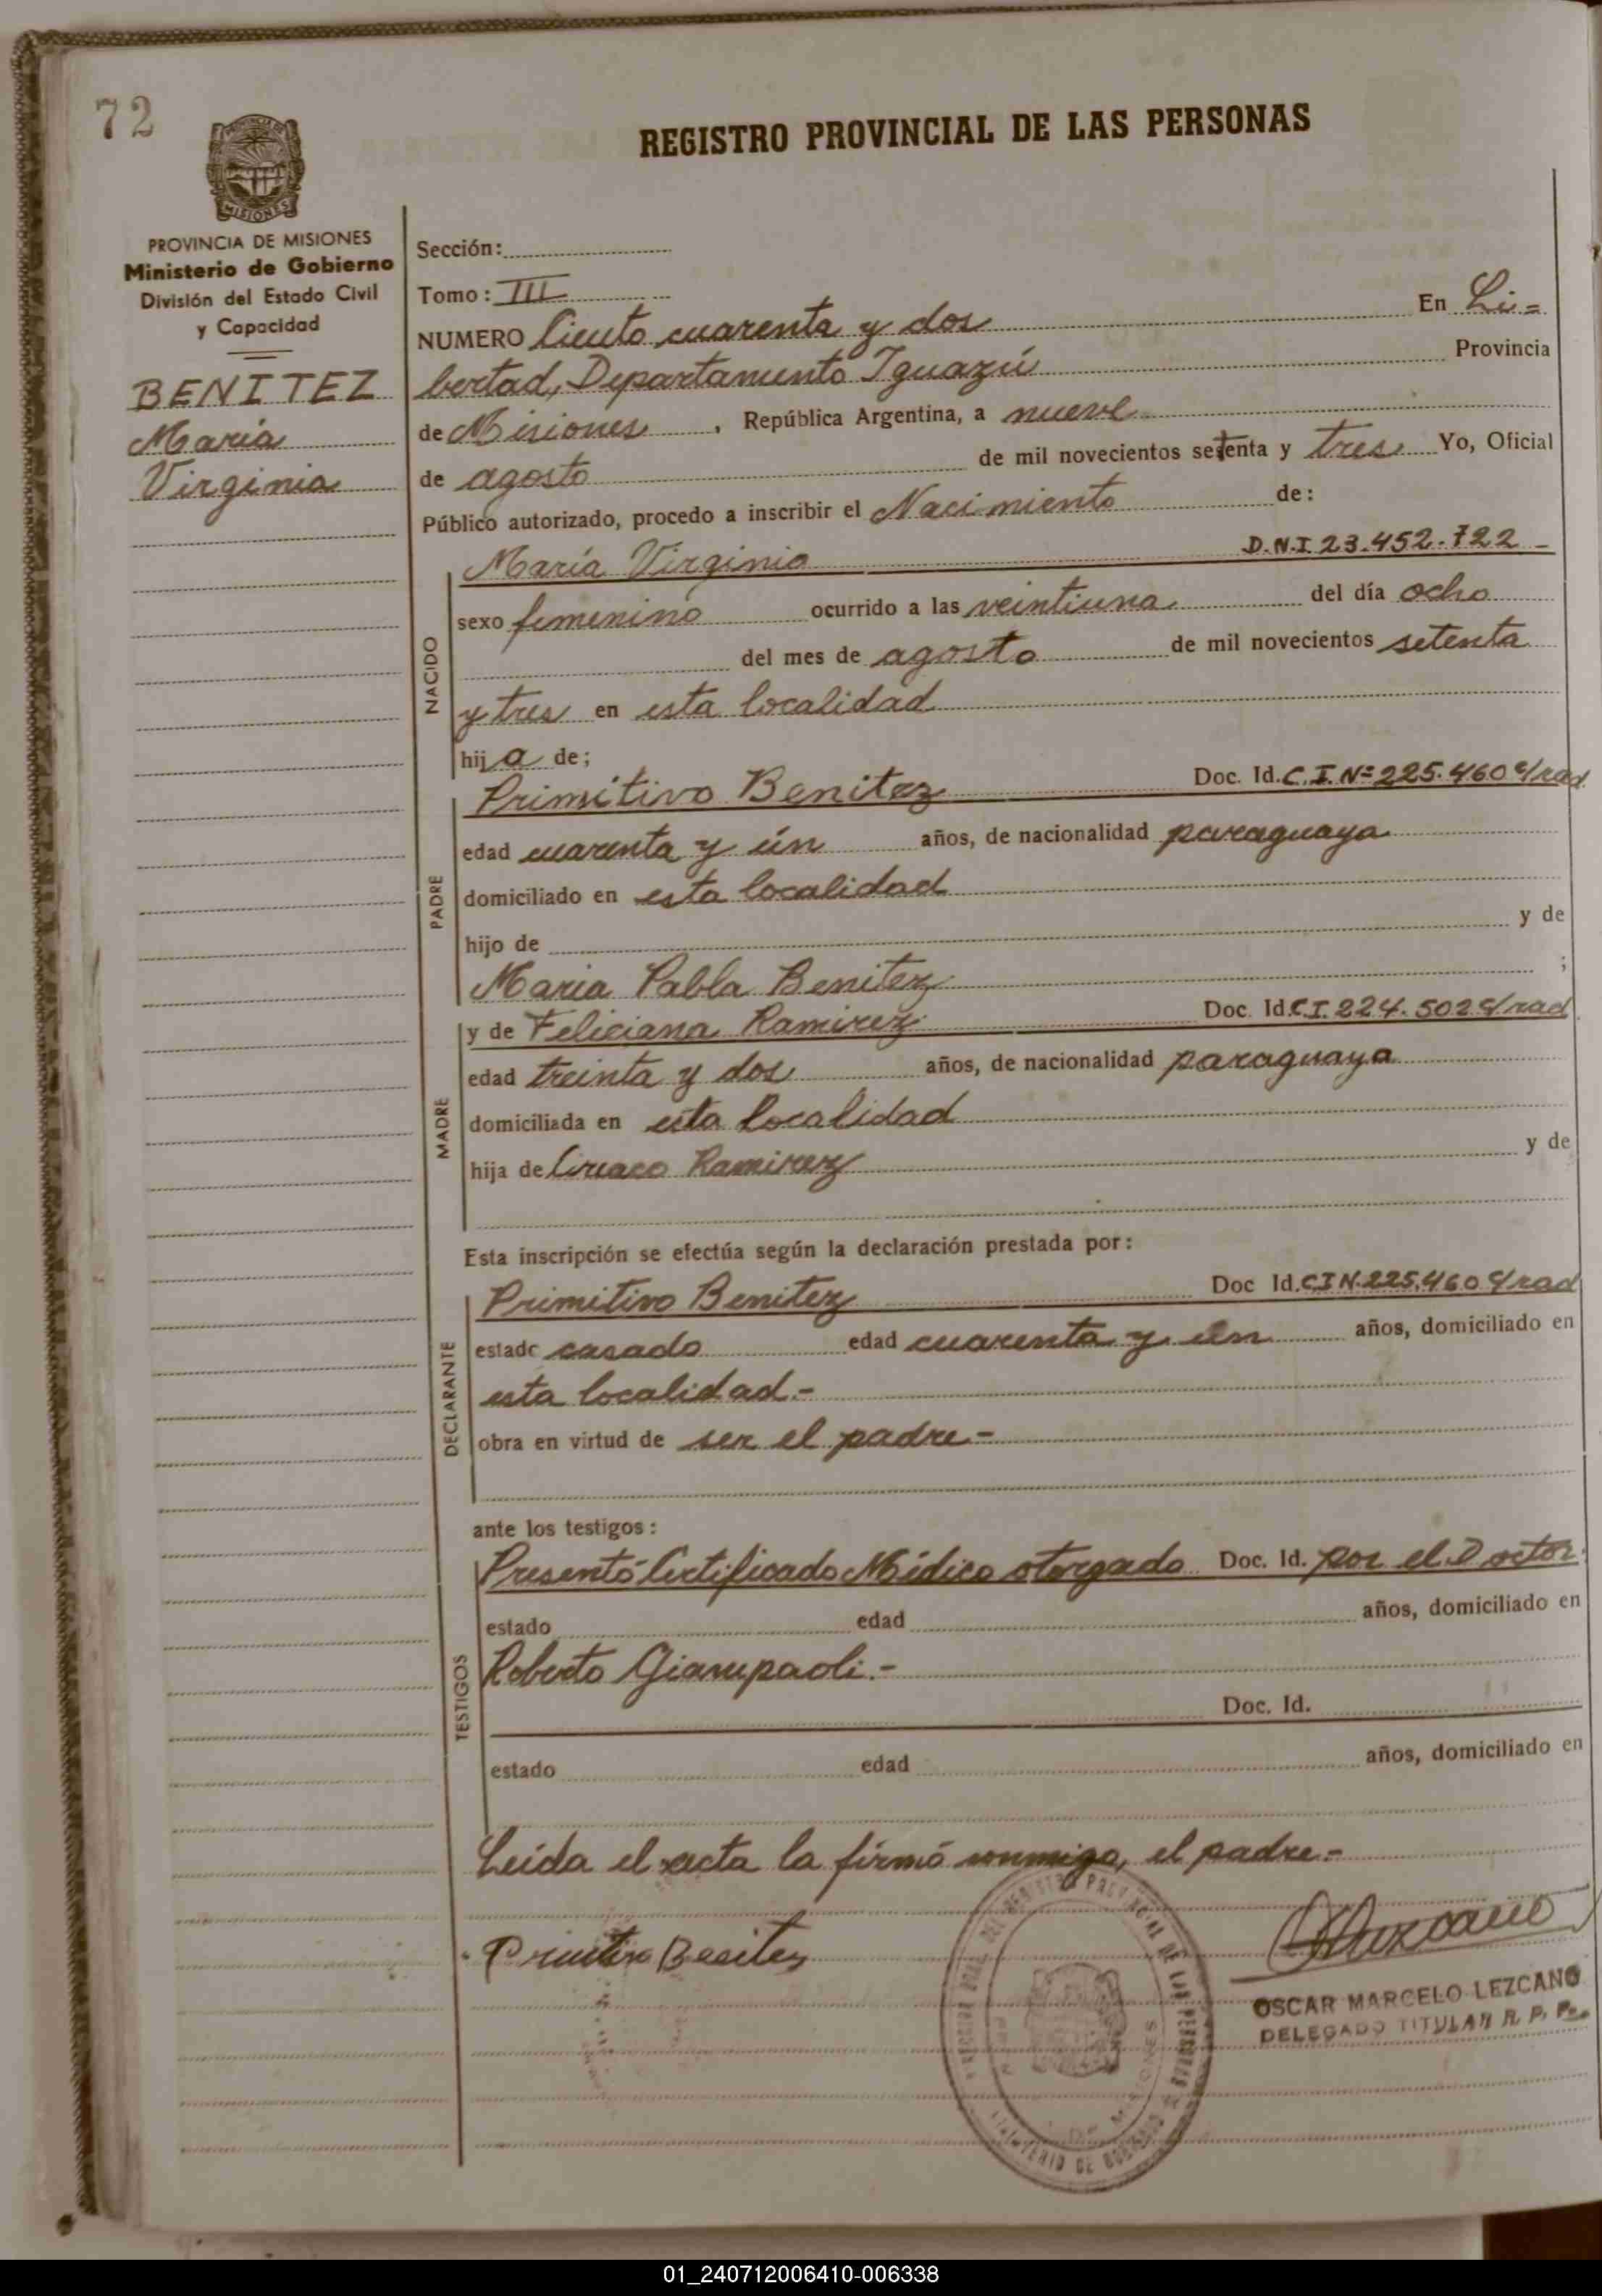 72
REGISTRO PROVINCIAL DE LAS PERSONAS
PROVINCIA DE
MISIONES
PROVINCIA DE MISIONES
Ministerio de Gobierno
División del Estado Civil
y Capacidad
BENITEZ
María
Virginia
Sección:
Tomo: III
NUMERO Ciento cuarenta y dos En Li=
bertad, Departamento Iguazú Provincia
de Misiones, República Argentina, a nueve
de agosto de mil novecientos setenta y tres Yo, Oficial
Público autorizado, procedo a inscribir el Nacimiento de:
NACIDO
María Virginia D.N.I 23.452.722 -
sexo femenino ocurrido a las veintiuna del día ocho
del mes de agosto de mil novecientos setenta
y tres en esta localidad
hija de;
PADRE
Primitivo Benitez Doc. Id. C.I. Nº 225.460 c/rad.
edad cuarenta y ún años, de nacionalidad paraguaya
domiciliado en esta localidad
hijo de y de
Maria Pabla Benitez ;
MADRE
y de Feliciana Ramirez Doc. Id. C.I. 224.502 c/rad
edad treinta y dos años, de nacionalidad paraguaya
domiciliada en esta localidad
hija de Ciriaco Ramirez y de
Esta inscripción se efectúa según la declaración prestada por:
DECLARANTE
Primitivo Benitez Doc Id. C I N. 225.460 c/rad
estado casado edad cuarenta y ún años, domiciliado en
esta localidad.-
obra en virtud de ser el padre.-
ante los testigos:
TESTIGOS
Presentó Certificado Médico otorgado Doc. Id. por el Doctor
estado edad años, domiciliado en
Roberto Giampaoli.-
Doc. Id.
estado edad años, domiciliado en
Leída el acta la firmó conmigo, el padre.-
Primitivo Benitez
DEL REGISTRO PROVINCIAL DE LAS PERSONAS
MINISTERIO DE GOBIERNO
MISIONES
OSCAR MARCELO LEZCANO
DELEGADO TITULAR R. P. P.
01_240712006410-006338